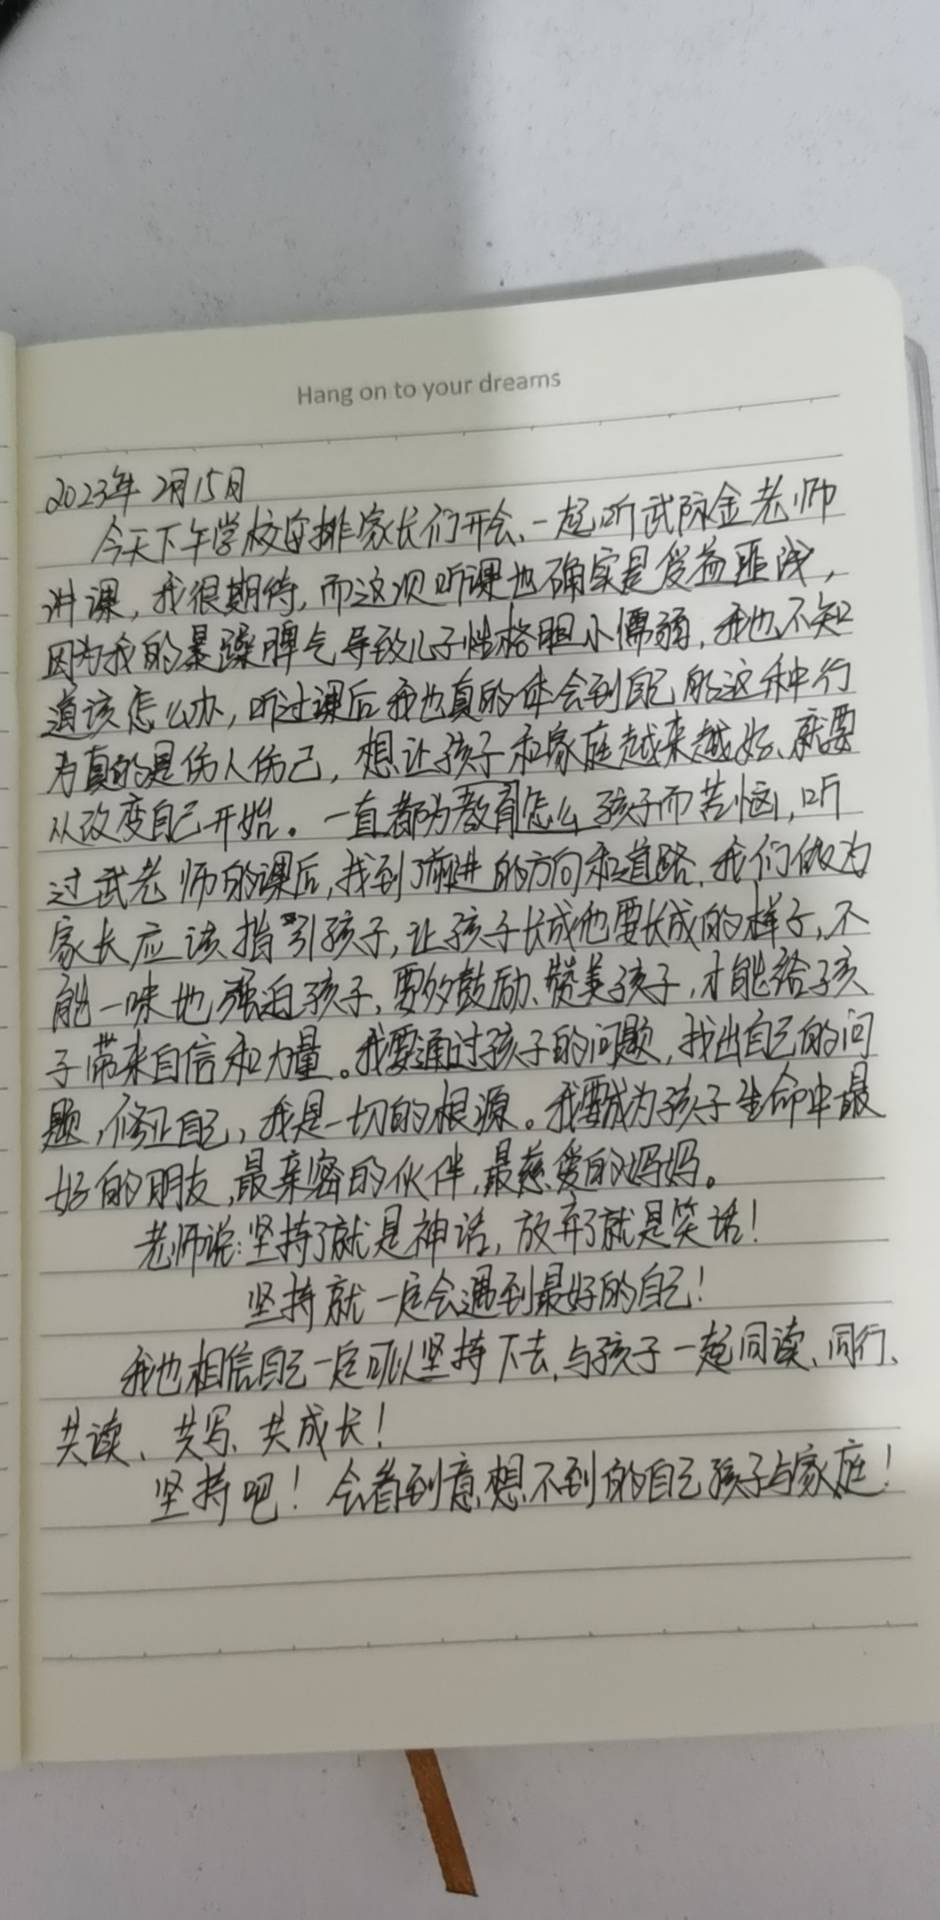 Hang on to your dreams
2023年2月15日
今天下午学校安排家长们开会、一起听武际金老师
讲课，我很期待，而这次听课也确实是受益匪浅，
因为我的暴躁脾气导致儿子性格胆小懦弱，我也不知
道该怎么办，听过课后我也真的体会到自己的这种行
为真的是伤人伤己，想让孩子和家庭越来越好、就要
从改变自己开始。一直都为教育怎么孩子而苦恼，听
过武老师的课后，找到了前进的方向和道路，我们做为
家长应该指引孩子，让孩子长成他要长成的样子，不
能一味地强迫孩子，要多鼓励、赞美孩子，才能给孩
子带来自信和力量。我要通过孩子的问题，找出自己的问
题，修正自己，我是一切的根源。我要成为孩子生命中最
好的朋友，最亲密的伙伴，最慈爱的妈妈。
老师说：坚持了就是神话，放弃了就是笑话！
坚持就一定会遇到最好的自己！
我也相信自己一定可以坚持下去，与孩子一起同读、同行、
共读、共写、共成长！
坚持吧！会看到意想不到的自己孩子与家庭！